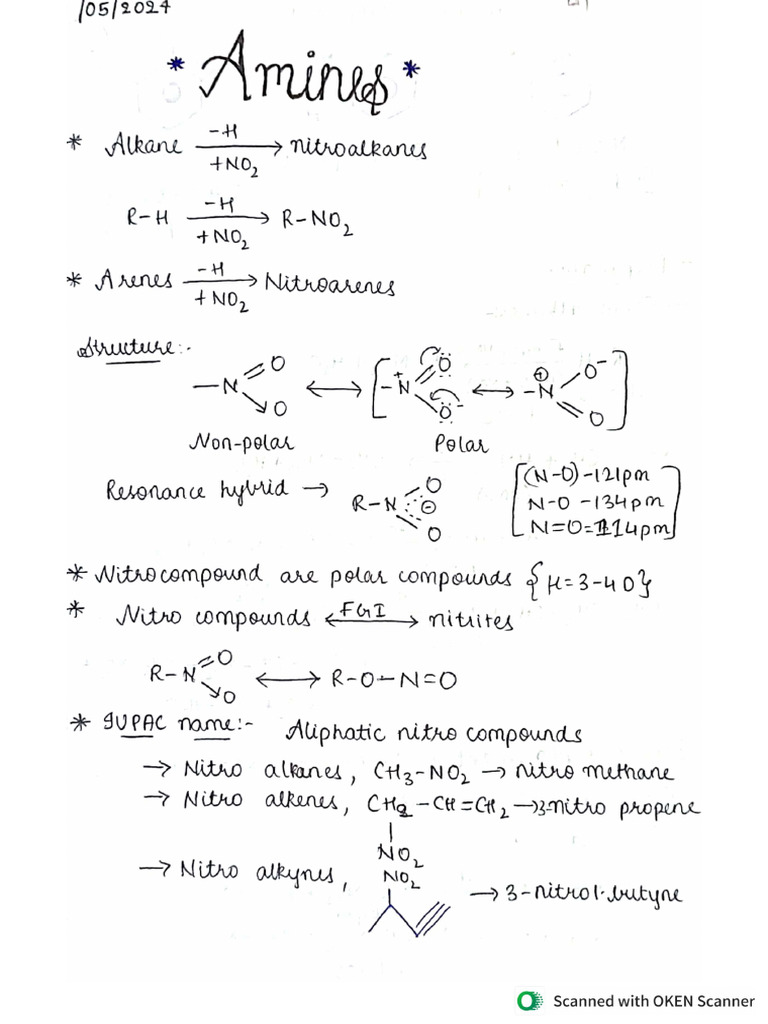 /05/2024
* Amines *
* Alkane —H +NO2 → nitroalkanes
R-H -H +NO2 → R-NO2
* Arenes -H +NO2 → Nitroarenes
Structure:-
-N=O →O ↔ [-N+ =O -O ↔ -N⊕ -O- =O]
Non-polar Polar
Resonance hybrid → R-N O ⊖ O [(N-O)-121pm
N-O -134pm
N=O=114pm]
* Nitrocompound are polar compounds {μ=3-4D}
* Nitro compounds ←FGI→ nitrites
R-N=O →O ↔ R-O-N=O
* IUPAC name:- Aliphatic nitro compounds
→ Nitro alkanes, CH3-NO2 → nitro methane
→ Nitro alkenes, CH2-CH=CH2 → 3-nitro propene
NO2
→ Nitro alkynes, NO2 → 3-nitro1-butyne
Scanned with OKEN Scanner